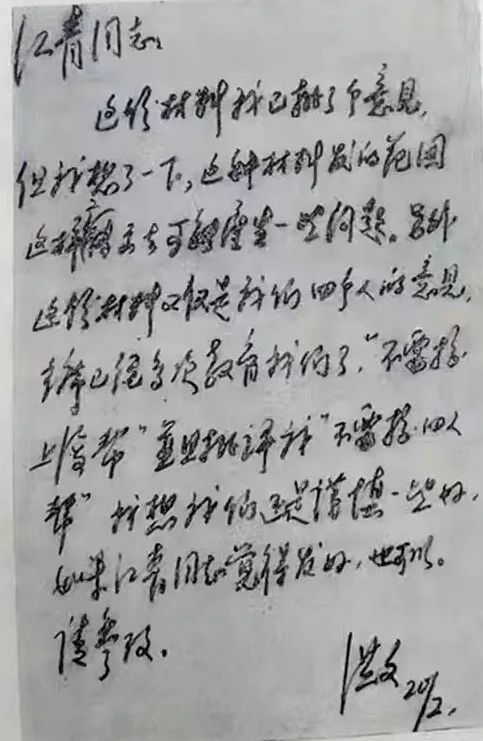 江青同志：
这份材料我已批了个意见，
但我想了一下，这种材料发的范围
这样广，下去可能产生一些问题。另外
这份材料只仅是我们四个人的意见，
主席已经多次教育我们了，“不要搞
上海帮”并且批评我“不要搞四人
帮”我想我们还是谨慎一些好，
如果江青同志觉得发好，也可以。
请参改。
洪文 20/2，